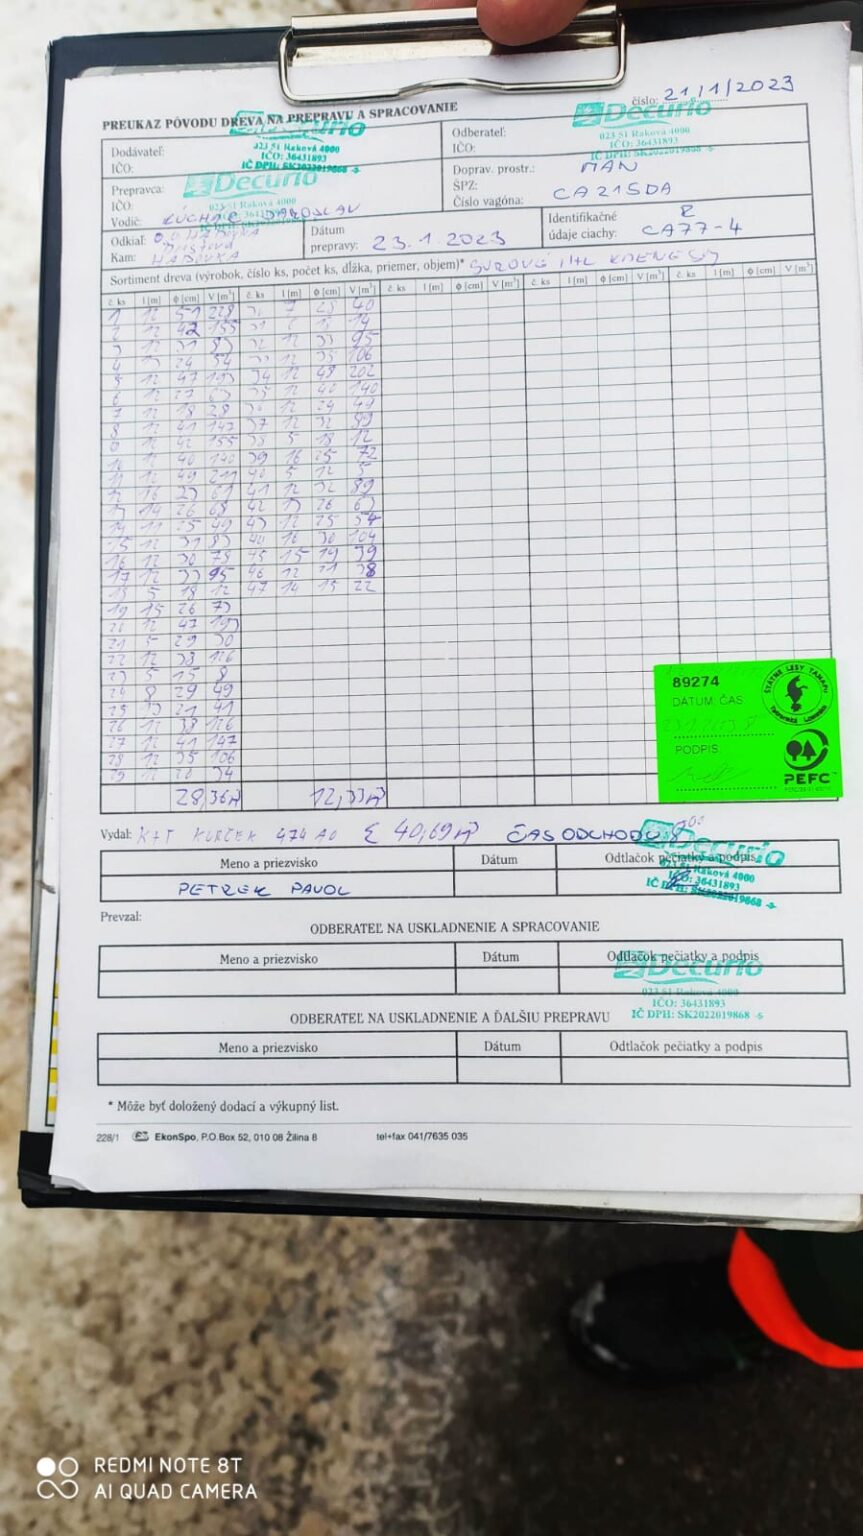 číslo: 21/1/2023
PREUKAZ PÔVODU DREVA NA PREPRAVU A SPRACOVANIE
Decurio
023 51 Raková 4000
IČO: 36431893
IČ DPH: SK2022019868 -5
Decurio
023 51 Raková 4000
IČO: 36431893
IČ DPH: SK2022019868 -5
Dodávateľ:
IČO:
Odberateľ:
IČO:
Prepravca:
IČO:
Vodič: JAROSLAV
Decurio
023 51 Raková 4000
Doprav. prostr.: MAN
ŠPZ:
Číslo vagóna: CA215DA
Odkiaľ:
Kam:
Dátum
prepravy: 23.1.2023
Identifikačné
údaje ciachy: CA77-4
Sortiment dreva (výrobok, číslo ks, počet ks, dĺžka, priemer, objem)* SUROVÉ
č. ks l [m] ϕ [cm] V [m³] č. ks l [m] ϕ [cm] V [m³] č. ks l [m] ϕ [cm] V [m³] č. ks l [m] ϕ [cm] V [m³] č. ks l [m] ϕ [cm] V [m³]
1 12 51 228
2 12 42 155
3 12 31 83 32 12 33 95
12 35 106
5 12 47 193 34 12 48 202
12 27 63 35 12 40 140
7 12 18 28 12 24 49
8 12 41 147 37 12 32 89
12 42 155 38 5 18 12
10 12 40 140 39 16 25 72
11 12 49 211 40 5 12 5
12 16 23 61 41 12 32 89
13 14 26 68 42 13 26 63
14 11 25 49 43 12 25 54
15 12 31 83 16 30 104
16 12 30 78 15 19 39
17 12 33 95 46 12 21 38
18 5 18 12 47 14 15 22
19 15 26 73
20 12 47 193
21 5 29 30
22 12 38 126
23 5 15 8
24 8 29 49
25 21 41
26 12 38 126
27 12 41 147
28 12 35 106
29 34
28,36 m³ 12,33 m³
89274
DÁTUM: ČAS:
PODPIS
ŠTÁTNE LESY TANAPU
Tatranská Lomnica
PEFC
Vydal: 474 A0 Σ 40,69 m³ ČAS ODCHODU 8⁰⁰
Meno a priezvisko Dátum Odtlačok pečiatky a podpis
PETREK PAVOL
Decurio
023 51 Raková 4000
IČO: 36431893
IČ DPH: SK2022019868 -5
Prevzal:
ODBERATEĽ NA USKLADNENIE A SPRACOVANIE
Meno a priezvisko Dátum Odtlačok pečiatky a podpis
Decurio
023 51 Raková 4000
IČO: 36431893
IČ DPH: SK2022019868 -5
ODBERATEĽ NA USKLADNENIE A ĎALŠIU PREPRAVU
Meno a priezvisko Dátum Odtlačok pečiatky a podpis
* Môže byť doložený dodací a výkupný list.
228/1 EkonSpo, P.O.Box 52, 010 08 Žilina 8 tel+fax 041/7635 035
REDMI NOTE 8T
AI QUAD CAMERA